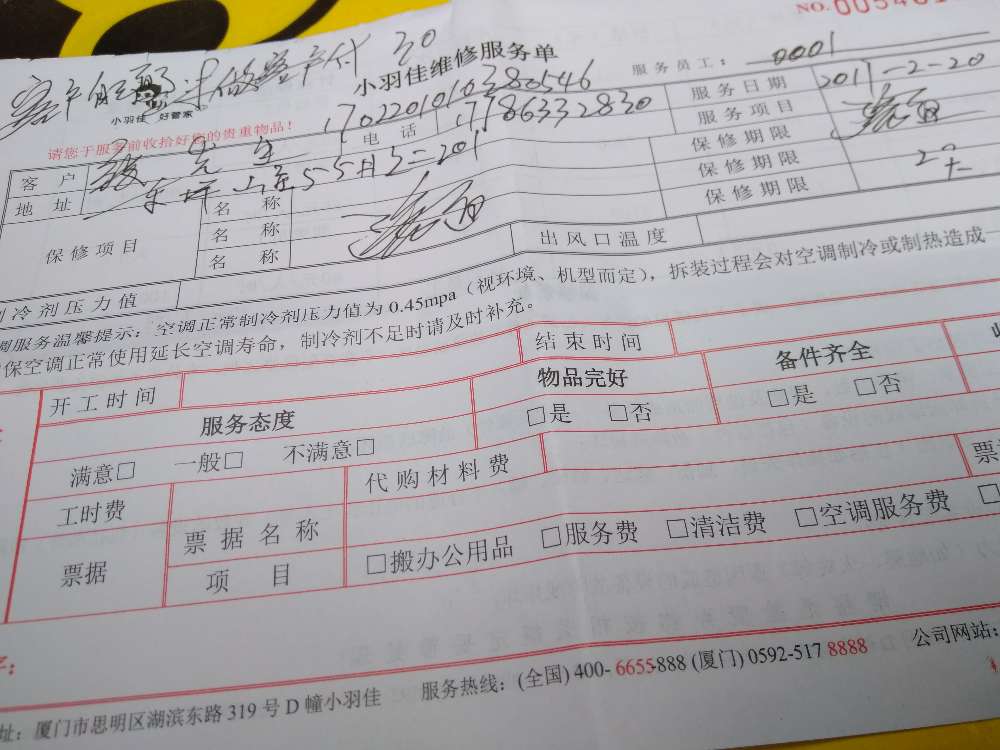 NO.
客户自配 未做客户付 30
小羽佳维修服务单
小羽佳 好管家
服务员工: 0001
请您于服务前收拾好您的贵重物品!
17022010103280546
服务日期 2017-2-20
客户 先生 电话 17786332830 服务项目
地址 东坪山 保修期限
保修项目 名称 保修期限
名称 保修期限
名称 出风口温度
制冷剂压力值
调服务温馨提示:空调正常制冷剂压力值为 0.45mpa(视环境、机型而定),拆装过程会对空调制冷或制热造成一
保空调正常使用延长空调寿命,制冷剂不足时请及时补充。
开工时间 结束时间
服务态度 物品完好 备件齐全
满意□ 一般□ 不满意□ □是 □否 □是 □否
工时费 代购材料费
票据 票据名称 □搬办公用品 □服务费 □清洁费 □空调服务费
项目
址:厦门市思明区湖滨东路 319 号 D 幢小羽佳 服务热线:(全国) 400-6655-888 (厦门) 0592-517 8888 公司网站: